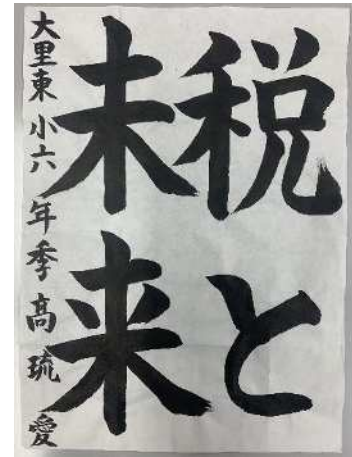 税と
未来
大里東小六年季高琉愛